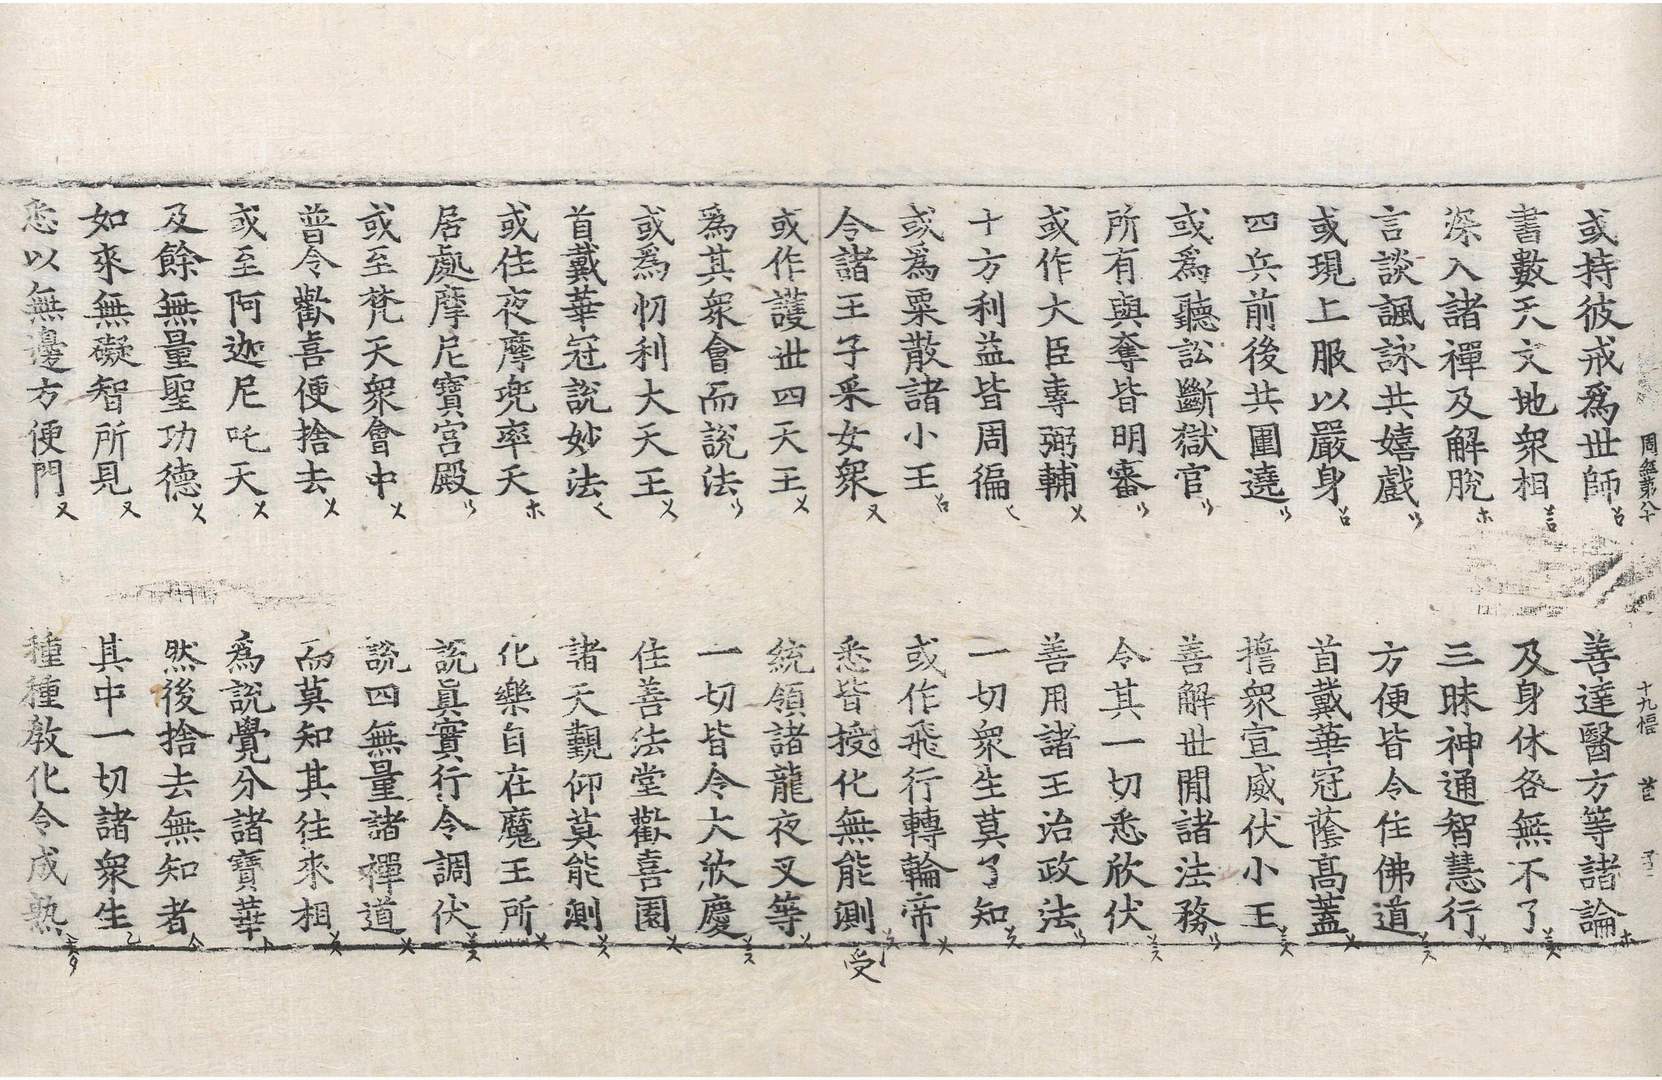 周經第八十 十九幅
或持彼戒爲世師 善達醫方等諸論
書數天文地衆相 及身休咎無不了
深入諸禪及解脫 三昧神通智慧行
言談諷詠共嬉戲 方便皆令住佛道
或現上服以嚴身 首戴華冠蔭高蓋
四兵前後共圍遶 擔衆宣威伏小王
或爲聽訟斷獄官 善解世間諸法務
所有與奪皆明審 令其一切悉欣伏
或作大臣專弼輔 善用諸王治政法
十方利益皆周徧 一切衆生莫了知
或爲粟散諸小王 或作飛行轉輪帝
令諸王子采女衆 悉皆授化無能測
受
或作護世四天王 統領諸龍夜叉等
爲其衆會而說法 一切皆令大欣慶
或爲忉利大天王 住善法堂歡喜園
首戴華冠說妙法 諸天覲仰莫能測
或住夜摩兜率天 化樂自在魔王所
居處摩尼寶宮殿 說眞實行令調伏
或至梵天衆會中 說四無量諸禪道
普令歡喜便捨去 而莫知其往來相
或至阿迦尼吒天 爲說覺分諸寶華
及餘無量聖功德 然後捨去無知者
如來無礙智所見 其中一切諸衆生
悉以無邊方便門 種種敎化令成熟